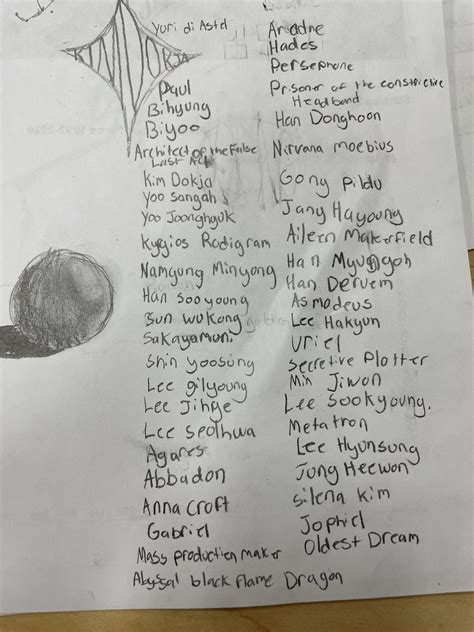 KIM DOKJA
Yuri di Aster
Paul
Bihyung
Biyoo
Architect of the False
Last Act
Kim Dokja
Yoo Sangah
Yoo Joonghyuk
Kyrgios Rodigram
Namgung Minyong
Han Sooyoung
Sun Wukong
Sakayamoni
Shin Yoosung
Lee Gilyoung
Lee Jihye
Lee Seolhwa
Agares
Abbadon
Anna Croft
Gabriel
Mass production maker
Abyssal black flame Dragon
Ariadne
Hades
Persephone
Prisoner of the constrictive
Headband
Han Donghoon
Nirvana Moebius
Gong Pildu
Jang Hayoung
Aileen Makerfield
Han Myungoh
Han Dervem
Asmodeus
Lee Hakyun
Uriel
Secretive Plotter
Min Jiwon
Lee Sookyoung.
Metatron
Lee Hyunsung
Jung Heewon
Silena Kim
Jophiel
Oldest Dream